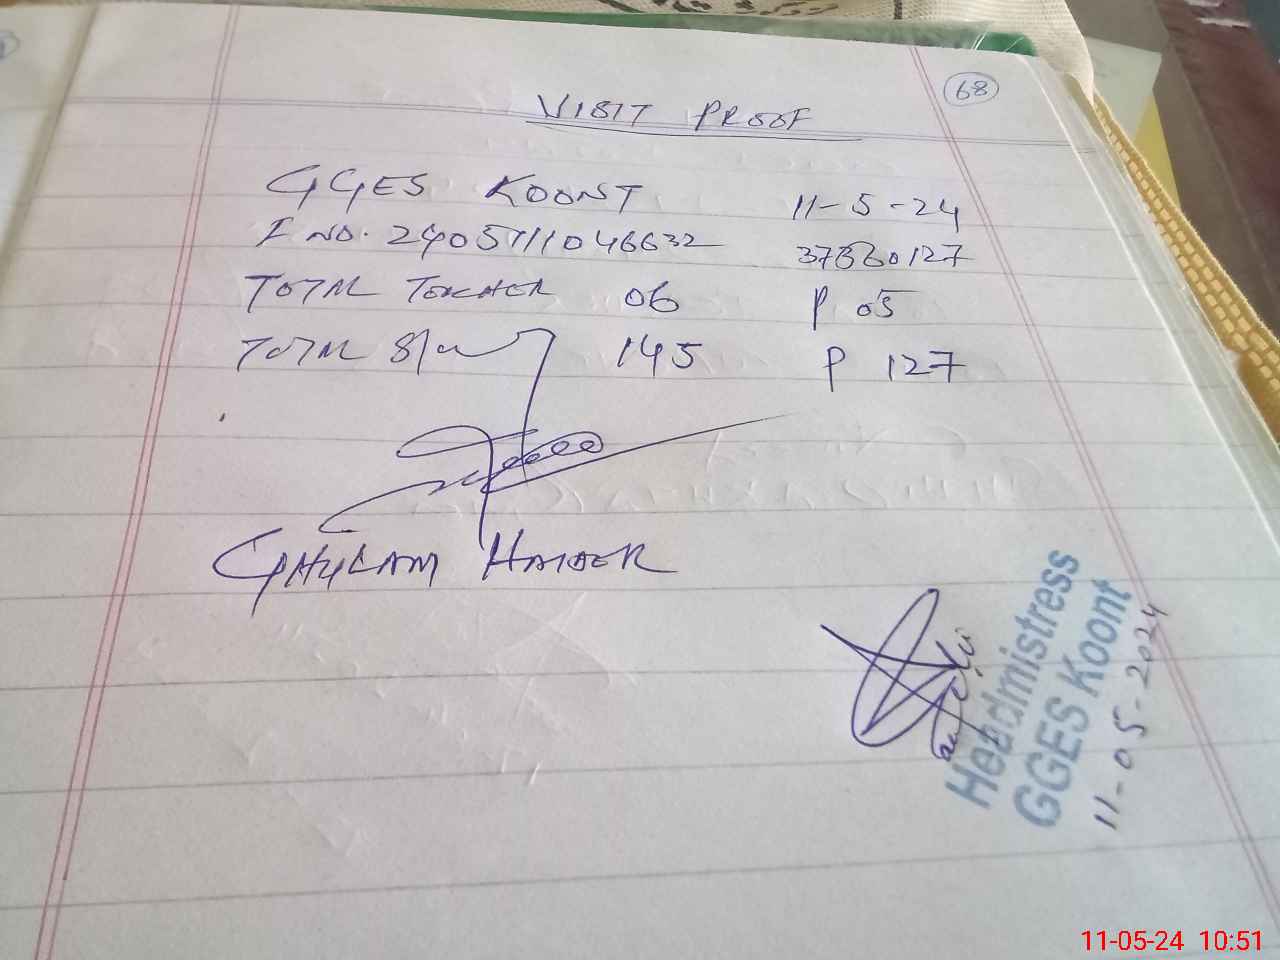 68
VISIT PROOF
GGES KOONT 11-5-24
I NO. 2405111046632 37330127
TOTAL TEACHER 06 P 05
TOTAL 145 P 127
GHULAM HAIDER
Headmistress
GGES Koont
11-05-2024
11-05-24 10:51